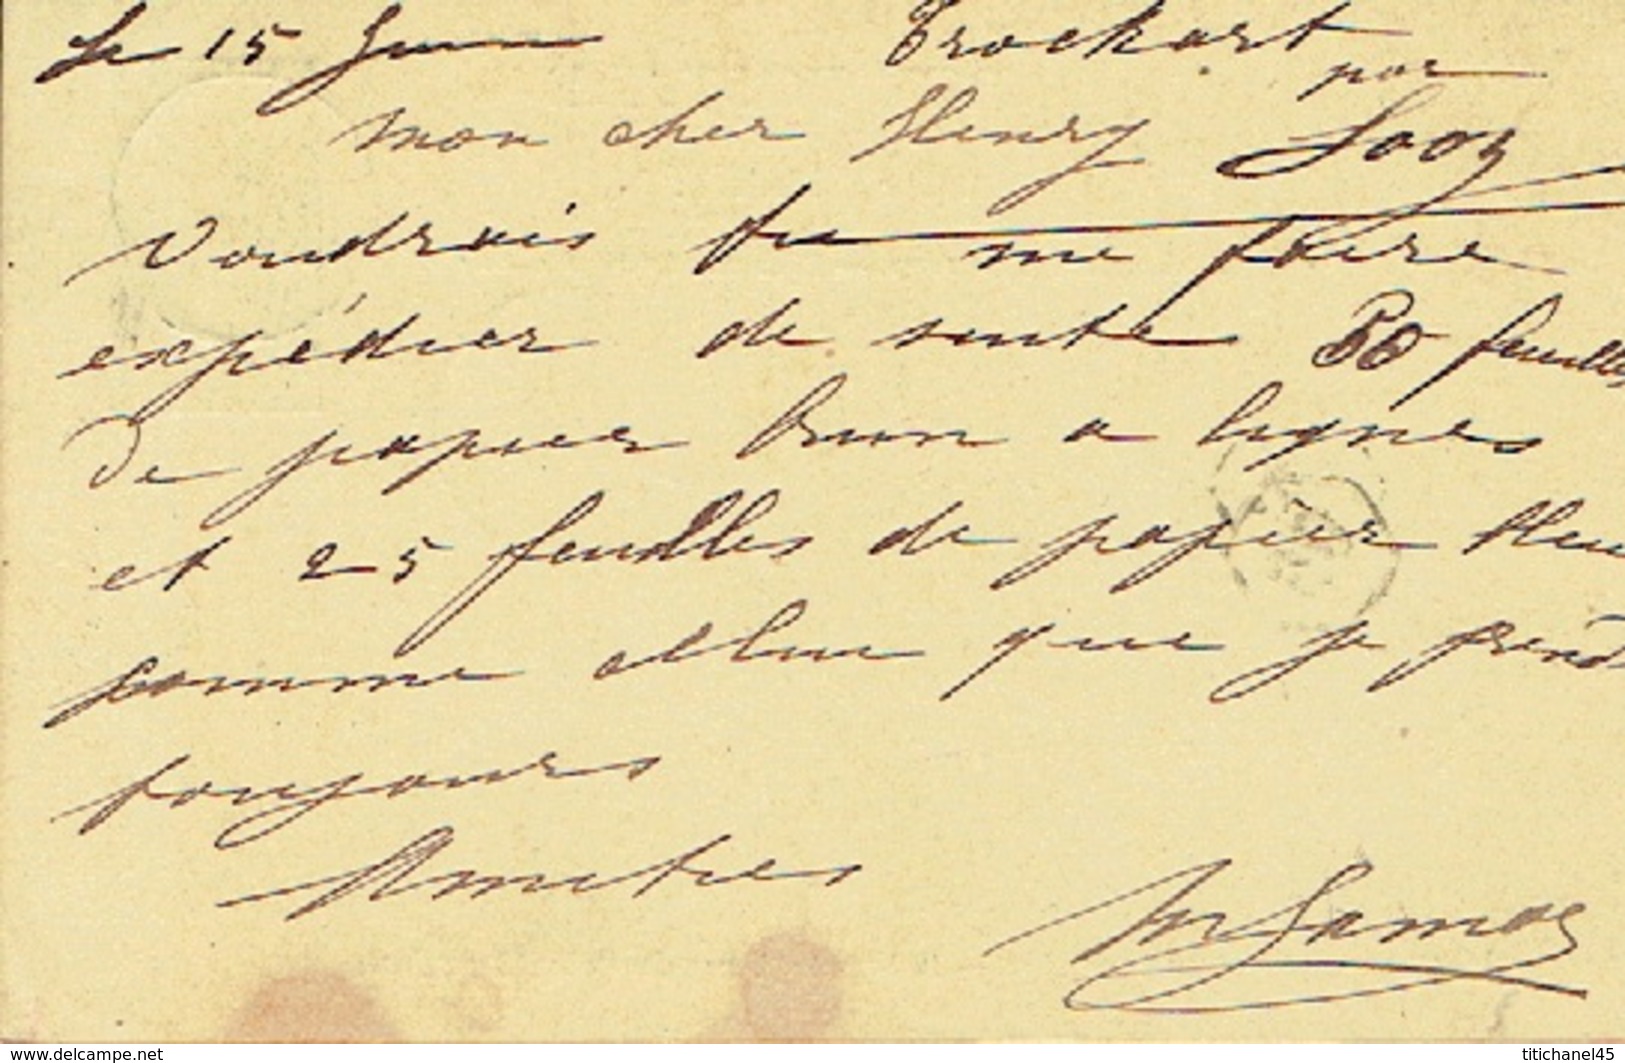 Le 15 Juin Trockart
par
mon cher Henry Looz
voudrais tu me faire
expédier de suite 50 feuilles
de papier brun a lignes
et 25 feuilles de papier bleu
comme celui que je prend
toujours
Amities
www.delcampe.net titichanel45